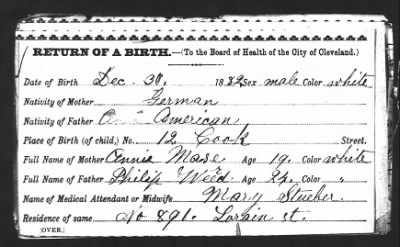 RETURN OF A BIRTH.—(To the Board of Health of the City of Cleveland.)
Date of Birth Dec. 30. 1882 Sex male Color white
Nativity of Mother German
Nativity of Father American
Place of Birth (of child,) No. 12 Cook Street.
Full Name of Mother Annie Mase Age 19. Color white
Full Name of Father Philip Weed Age 22. Color "
Name of Medical Attendant or Midwife Mary Stucher.
Residence of same No 891. Lorain st.
(OVER.)